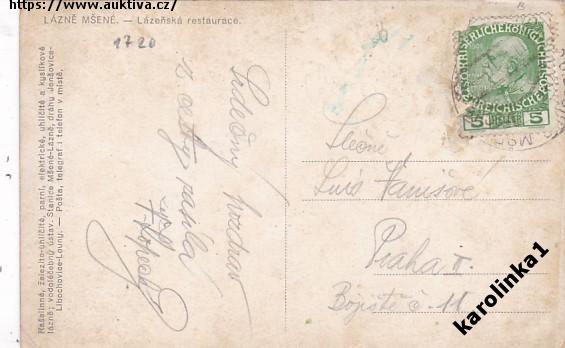 https://www.auktiva.cz/
LÁZNĚ MŠENÉ. — Lázeňská restaurace.
1720
Rašelinné, železito-uhličité, parní, elektrické, uhličité a kyslíkové
lázně; vodoléčebný ústav. Stanice Mšené-Lázně, dráhy Jenšovice-
Libochovice-Louny. — Pošta, telegraf i telefon v místě.
Srdečný pozdrav
z cesty zasílá
Slečně
Praha II.
Bojiště č 11
5 HELLER 5
karolinka1